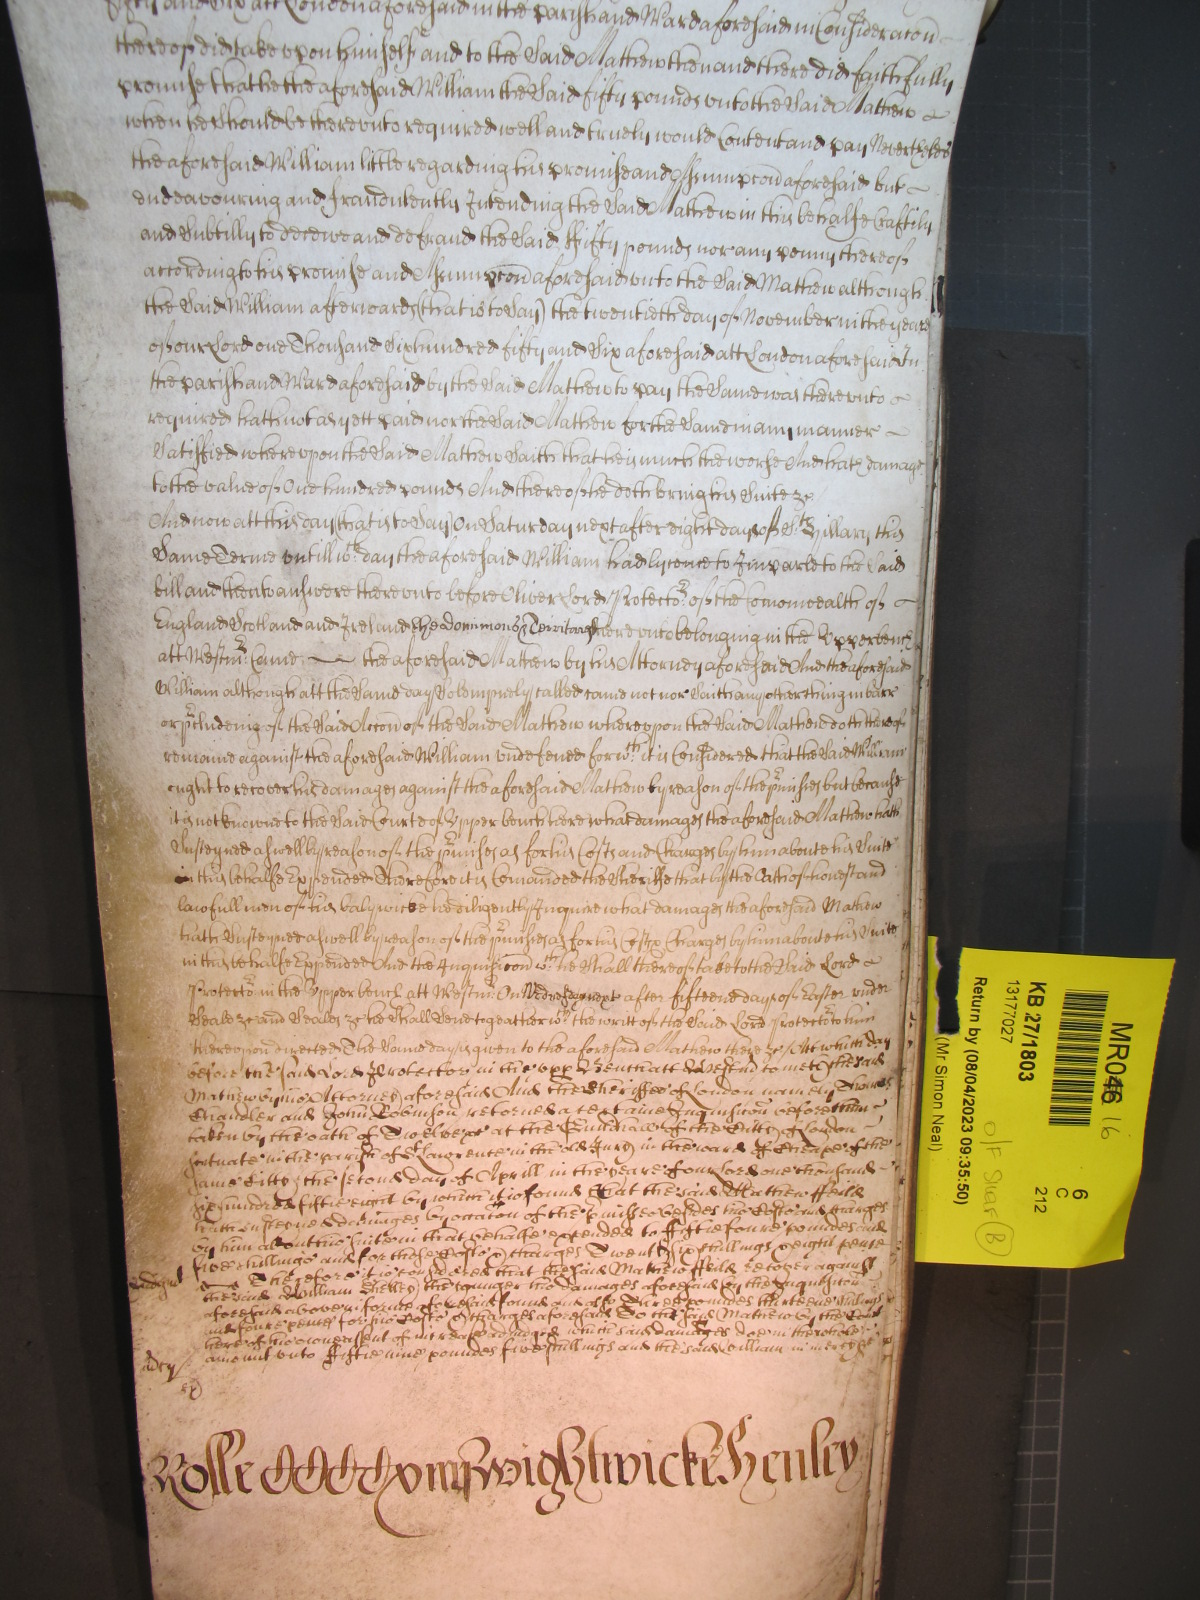 fifty and Six att London aforesaid in the parish and Ward aforesaid in Consideracon
thereof did take upon himselfe and to the Said Mathew then and there did faithfully
promise that he the aforesaid William the Said fifty pounds unto the Said Mathew
when he Should be thereunto required well and truely would Content and pay Neverthelesse
the aforesaid William little regarding his promise and Assumpcon aforesaid but
endeavouring and fraudulently Intending the Said Mathew in this behalfe Craftily
and Subtilly to deceive and defraud the Said ffifty pounds nor any penny thereof
according to his promise and Assumpcon aforesaid unto the Said Mathew although
the Said William afterwards (that is to Say) the twentieth day of November in the yeare
of our Lord one Thousand Sixhundred fifty and Six aforesaid att London aforesaid In
the parish and Ward aforesaid by the Said Mathew to pay the Same was thereunto
required hath not as yett paid nor the Said Mathew for the Same in any manner
Satisfied whereupon the Said Mathew Saith that he is much the worse And hath damage
to the value of One hundred pounds And thereof he doth bring his Suite &c
And now att this day (that is to Say) On Saturday next after eight dayes of St Hillary this
Same Terme untill wch day the aforesaid William had lycence to Imparle to the Said
bill and then to answere thereunto before Oliver Lord Protector of the Comonwealth of
England Scotland and Ireland & the Dominions & Territories thereunto belonging in the Upper bench
att Westmr Came the aforesaid Mathew by his Attorney aforesaid And the aforesaid
William although att the Same day Solempnely called came not nor Saith any other thing in barr
or pcludeing of the Said Accon of the Said Mathew whereupon the Said Mathew doth thereof
remaine against the aforesaid William undefened for wch it is Considered that the Said William
ought to recover his damages against the aforesaid Mathew by reason of the pmises but because
it is not knowne to the Said Courte of Upper bench here what damages the aforesaid Mathew hath
Susteyned aswell by reason of the pmises as for his Costs and Charges by him aboute his Suite
in this behalfe Expended Therefore it is Comanded the Sheriffe that by the Oath of honest and
lawfull men of his balywicke he diligently Inquire what damages the aforesaid Mathew
hath Susteyned aswell by reason of the pmises as for his Costs & Charges by him aboute his Suite
in this behalfe Expended And the Inquisicon wch he Shall thereof take to the Said Lord
Protector in the Upper bench att Westmr On Wednesday next after fifteene dayes of Easter under
Seale &c and Seales &c he Shall Send togeather wth the writt of the Said Lord Protector to him
thereupon directed The Same day is given to the aforesaid Mathew there &c Att which day
before the said Lord Protector in the upper Bench att Westmr cometh the said
Mathew by his Attorney aforesaid And the Sheriffes of London namely Thomas
Chandler and John Robinson retorned a certaine Inquisicon before them
taken by the oath of Twelve &c at the Guildhall of the Citty of London
scituate in the parish of St Lawrence in the old Jury in the ward of Cheape of the
same Citty the second day of Aprill in the yeare of our Lord one thousand
sixhundred fiftie eight by which it is found That the said Mathew ffeild
hath susteyned damages by occacon of the pmisses besides his Costs and charges
by him about his suite in that behalfe expended to ffiftie foure poundes and
five shillings and for those Costs & charges Twenty six shillings & eight pence
Judgmt Therefore it is considered that the said Mathew ffeild recover against
the said William Shelley the younger his damages aforesaid by the Inquisicon
aforesaid above in forme aforesaid found and also Three poundes thirteene shillings
and foure pence for his Costs & charges aforesaid To the said Mathew by the Court
here of his owne assent of increase adiudged which said damages doe in the whole
amount unto ffiftie nine poundes five shillings and the said William in mercy &c
mcy
Rolle Wightwicke Henley
MR046 16
6
C
212
KB 27/1803
13177027
Return by (08/04/2023 09:35:50)
(Mr Simon Neal)
O/F Shelf B